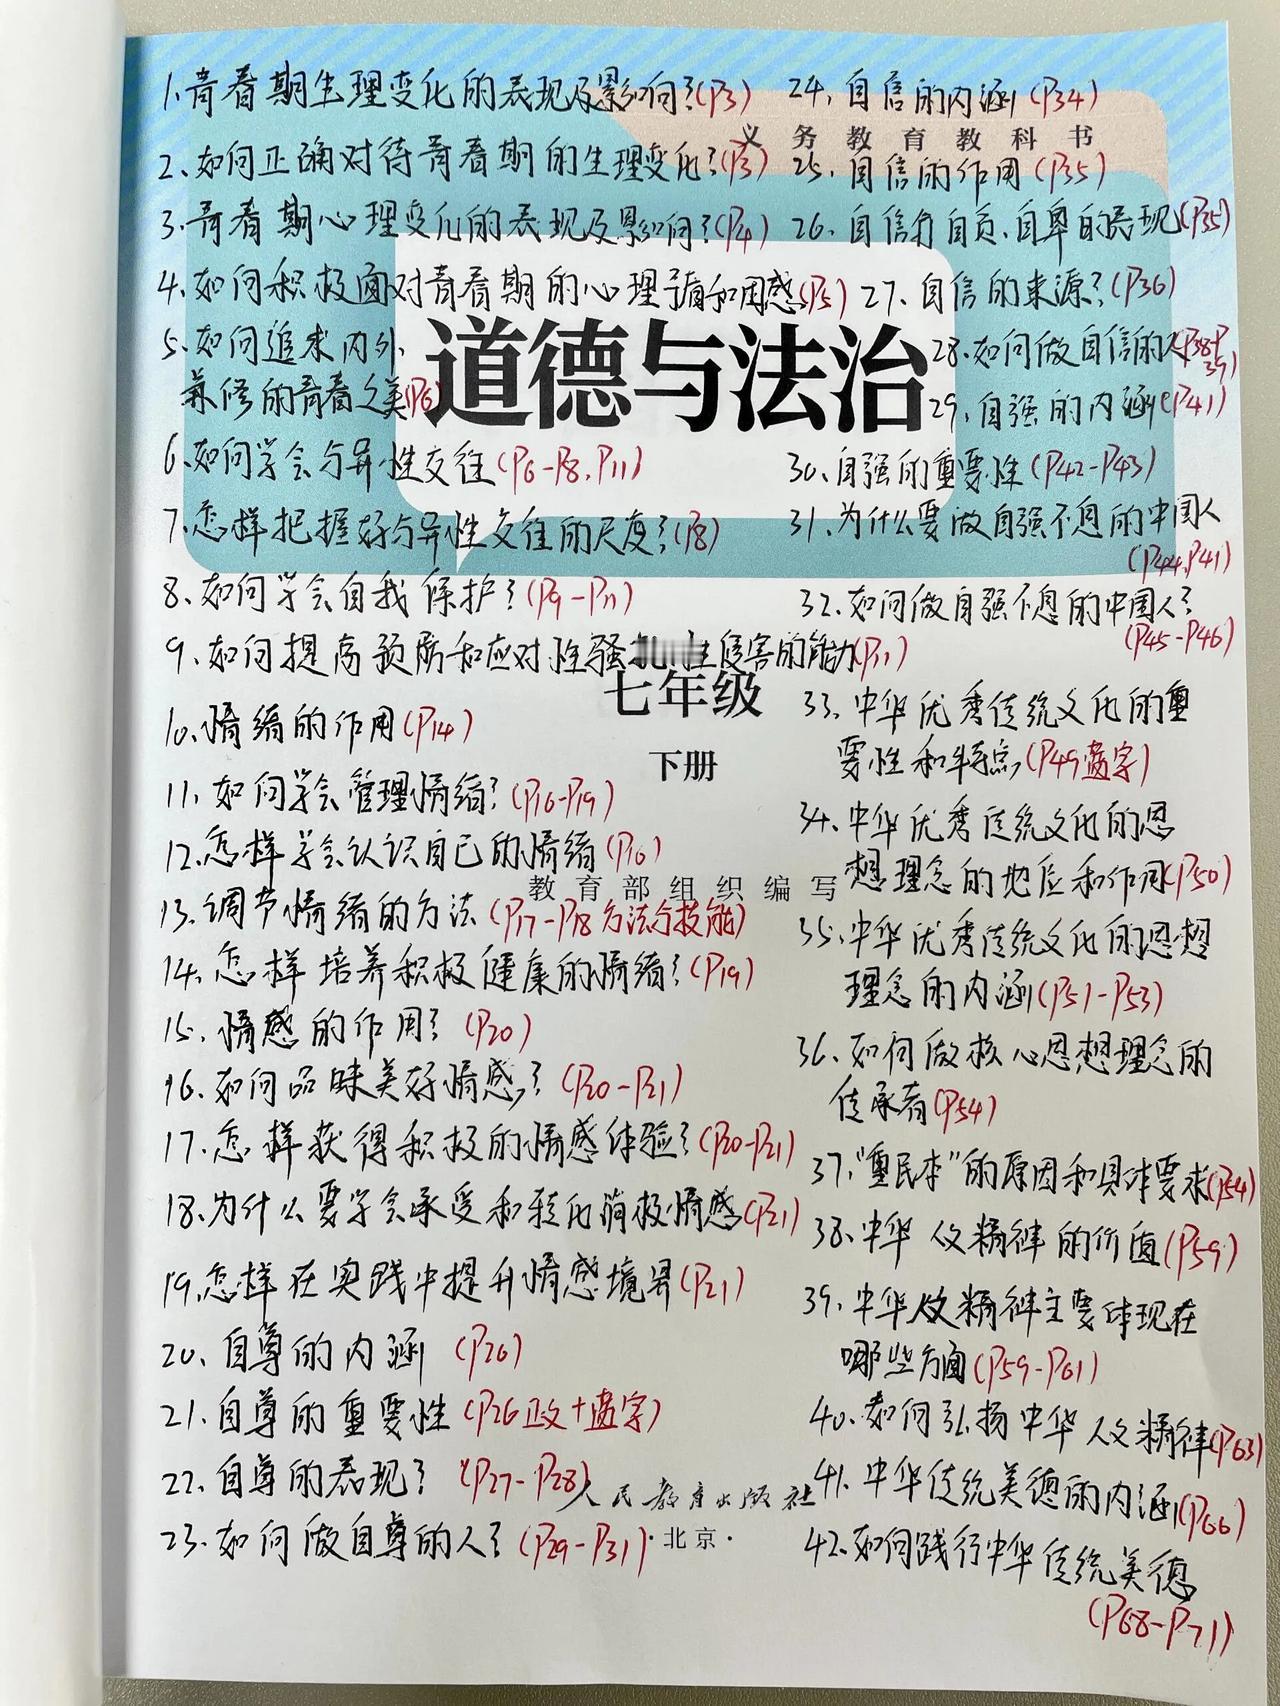 1.青春期生理变化的表现及影响?(P3)
2、如何正确对待青春期的生理变化?(P3)
3、青春期心理变化的表现及影响?(P4)
4、如何积极面对青春期的心理 和困惑(P5)
5、如何追求内外
兼修的青春之美(P6)
6、如何学会与异性交往(P6-P8,P11)
7、怎样把握好与异性交往的尺度?(P8)
8、如何学会自我保护?(P9-P11)
9、如何提高预防和应对性骚 性侵害的能力(P11)
10、情绪的作用(P14)
11、如何学会管理情绪?(P16-P19)
12、怎样学会认识自己的情绪(P16)
13、调节情绪的方法(P17-P18方法与技能)
14、怎样培养积极健康的情绪?(P19)
15、情感的作用?(P20)
16、如何品味美好情感?(P20-P21)
17、怎样获得积极的情感体验?(P20-P21)
18、为什么要学会承受和转化消极情感(P21)
19、怎样在实践中提升情感境界(P21)
20、自尊的内涵(P26)
21、自尊的重要性(P26正文+蓝字)
22、自尊的表现?(P27-P28)
23、如何做自尊的人?(P29-P31)
24、自信的内涵(P34)
25、自信的作用(P35)
26、自信和自负、自卑的表现(P35)
27、自信的来源?(P36)
28、如何做自信的人(P38+P39)
29、自强的内涵(P41)
30、自强的重要性(P42-P43)
31、为什么要做自强不息的中国人
(P44,P41)
32、如何做自强不息的中国人?
(P45-P46)
33、中华优秀传统文化的重
要性和特点(P49蓝字)
34、中华优秀传统文化的思
想理念的地位和作用(P50)
35、中华优秀传统文化的思想
理念的内涵(P51-P53)
36、如何做核心思想理念的
传承者(P54)
37、"重民本"的原因和具体要求(P54)
38、中华人文精神的价值(P59)
39、中华人文精神主要体现在
哪些方面(P59-P61)
40、如何弘扬中华人文精神(P63)
41、中华传统美德的内涵(P66)
42、如何践行中华传统美德
(P68-P71)
义务教育教科书
道德与法治
七年级
下册
教育部组织编写
人民教育出版社
·北京·